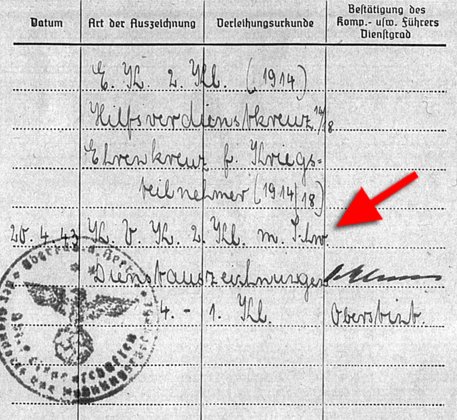 Datum Art der Auszeichnung Verleihungsurkunde Bestätigung des Komp.- usw. Führers Dienstgrad
E. K. 2. Kl. (1914)
Hilfsverdienstkreuz 14/18
Ehrenkreuz f. Kriegs-
teilnehmer (1914/18)
20.4.43 K. V. K. 2. Kl. m. Schw
Dienstauszeichnungen
4. - 1. Kl. Oberstint.